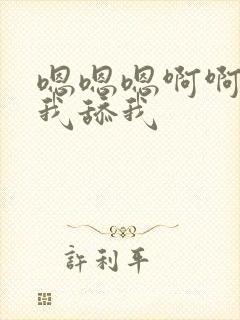 嗯嗯嗯啊啊
我舔我
許利平